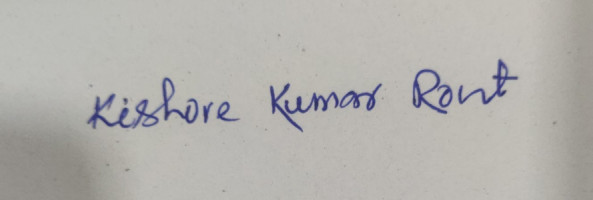 Kishore Kumar Rout